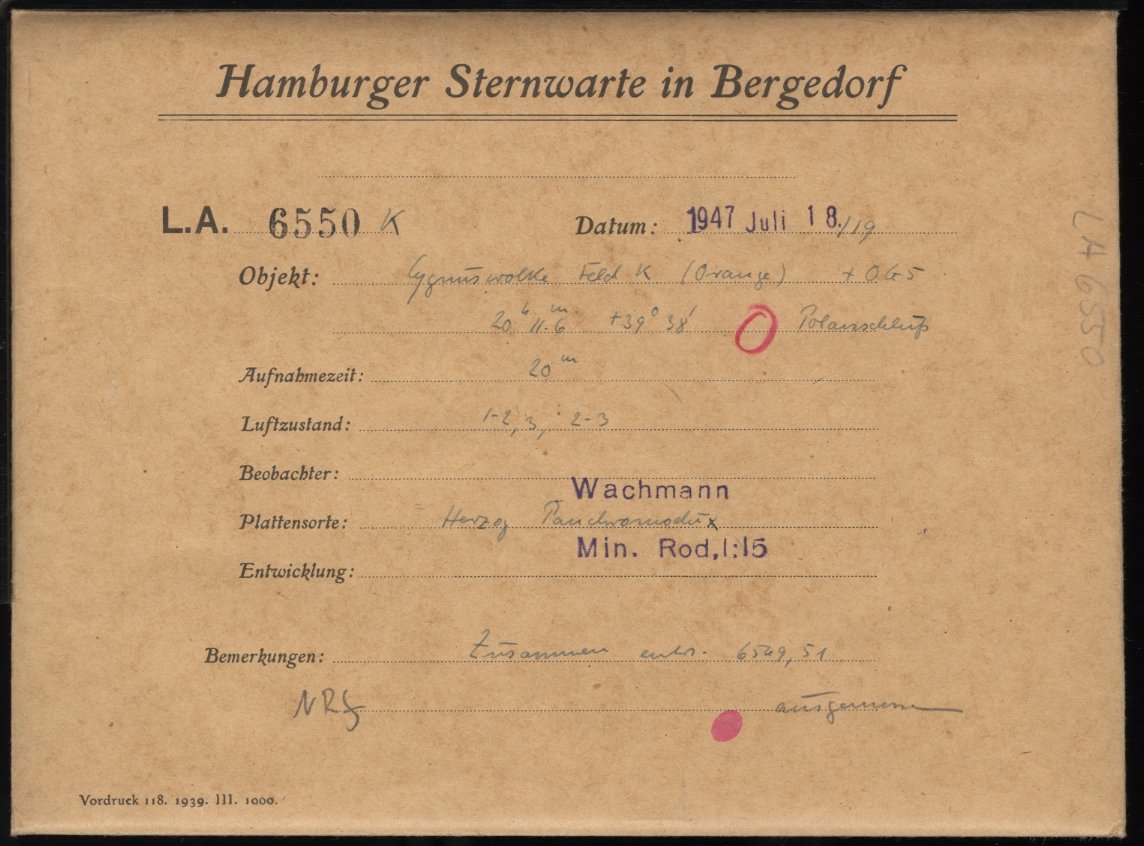 Hamburger Sternwarte in Bergedorf
L.A. 6550 K Datum: 1947 Juli 18./19
Objekt: Cygnuswolke Feld K (Orange) + OG5
20h 11.6m +39° 38' Polanschluß
Aufnahmezeit: 20m
Luftzustand: 1-2, 3, 2-3
Beobachter:
Wachmann
Plattensorte: Herzog Panchromodux
Min. Rod, 1:15
Entwicklung:
Bemerkungen: Zusammen entw. 6549, 51
ausgemessen
Vordruck 118. 1939. III. 1000.
LA 6550